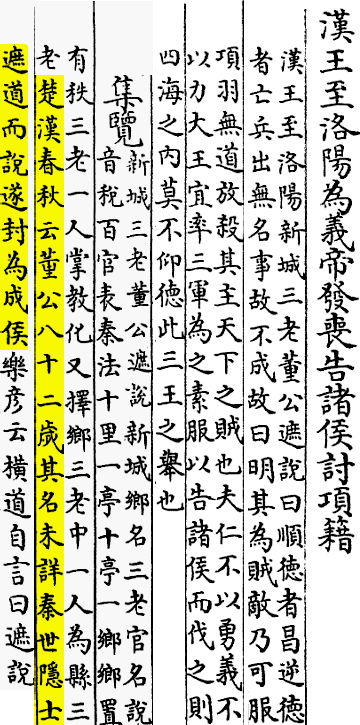 漢王至洛陽為義帝發喪告諸侯討項籍
漢王至洛陽新城三老董公遮說曰順德者昌逆德
者亡兵出無名事故不成故曰明其為賊敵乃可服
項羽無道放殺其主天下之賊也夫仁不以勇義不
以力大王宜率三軍為之素服以告諸侯而伐之則
四海之內莫不仰德此三王之舉也
集覽新城三老董公遮說新城鄉名三老官名說
音稅百官表秦法十里一亭十亭一鄉鄉置
有秩三老一人掌教化又擇鄉三老中一人為縣三
老楚漢春秋云董公八十二歲其名未詳秦世隱士
遮道而說遂封為成侯樂彥云橫道自言曰遮說